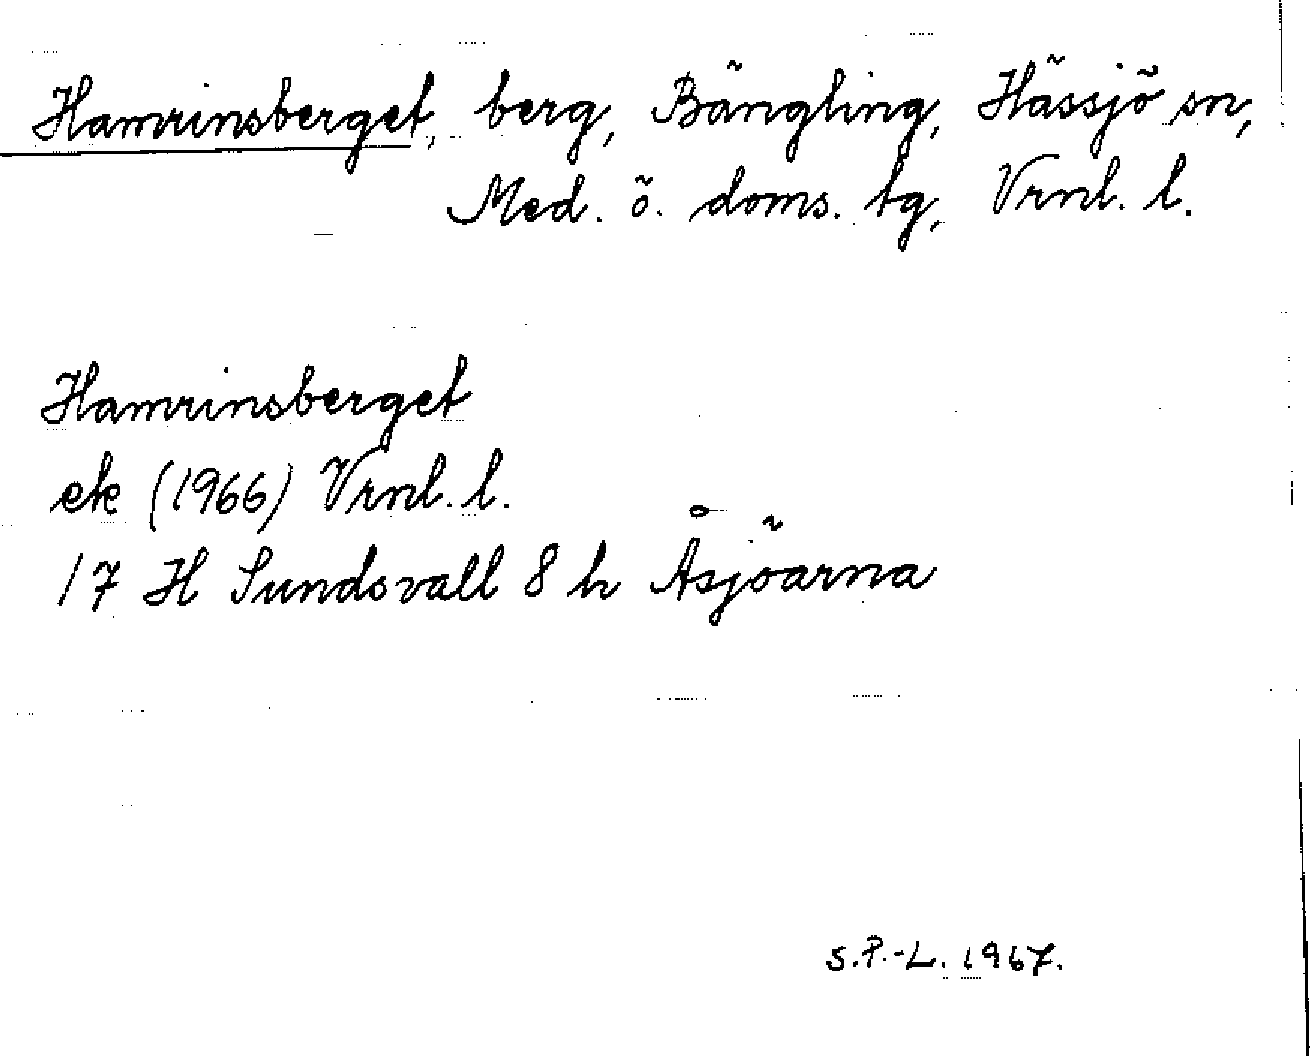 Hamrinsberget, berg, Bängling, Hässjö sn,
Med. ö. doms. tg, Vrnl. l.
Hamrinsberget
ek (1966) Vrnl. l.
17 H Sundsvall 8 h Åsjöarna
S.P.-L. 1967.